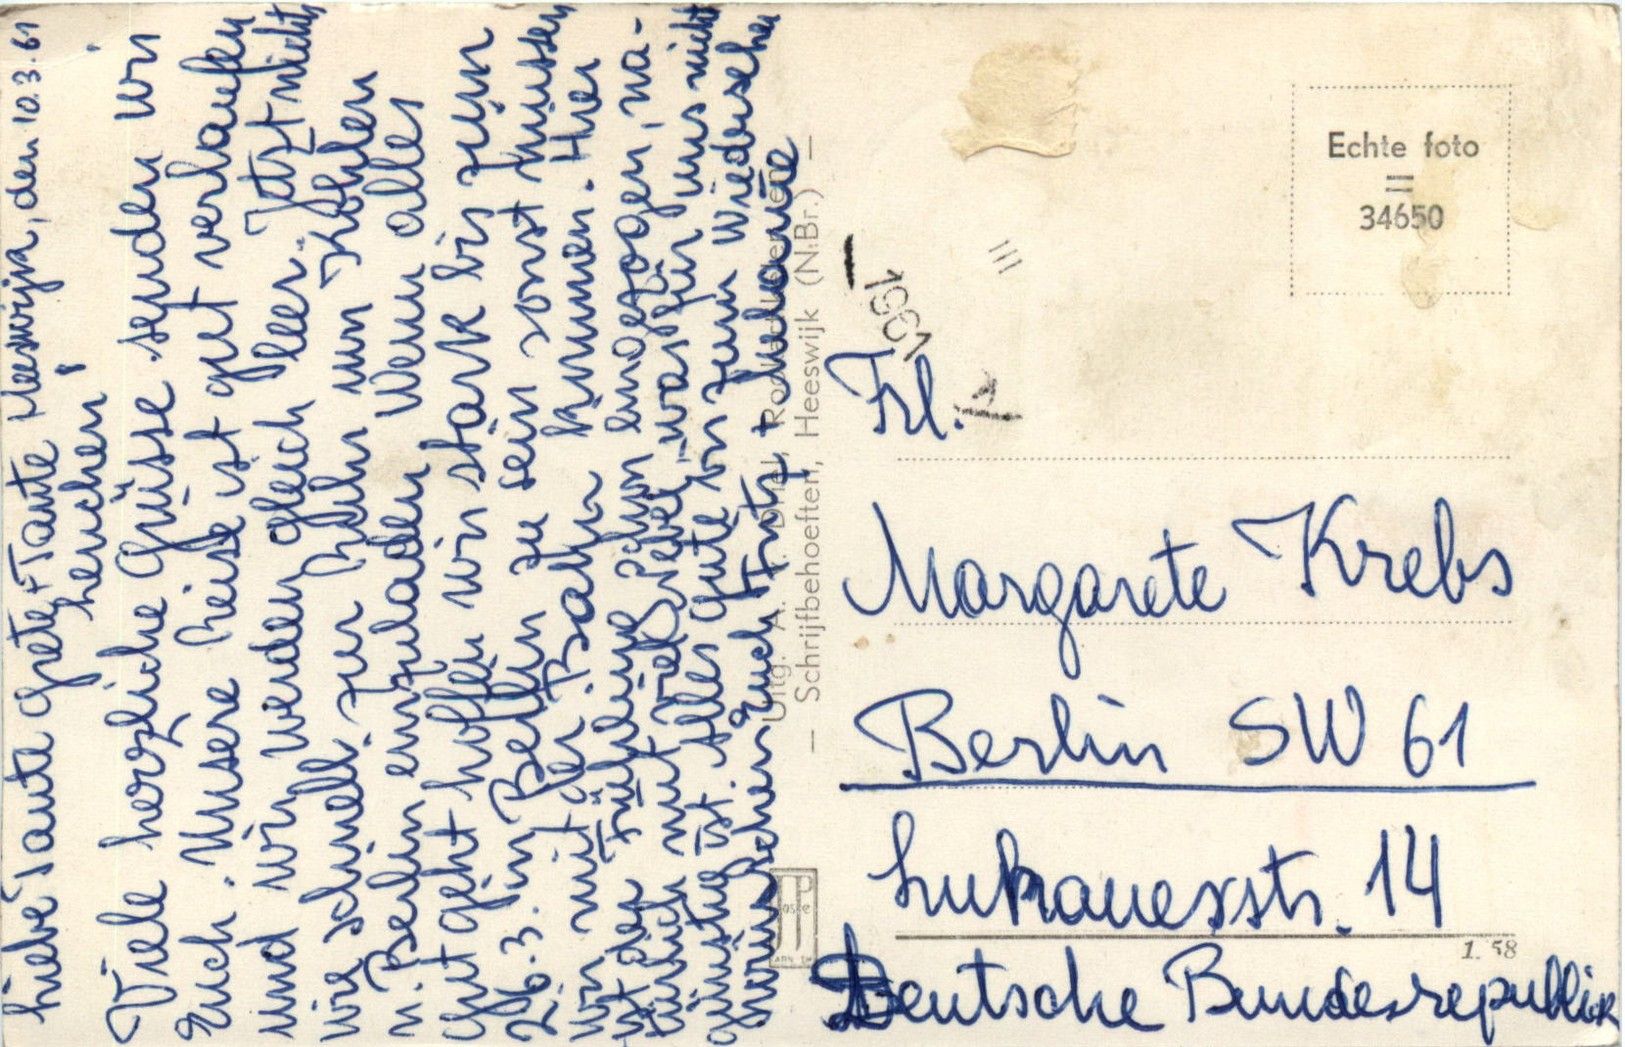 Heeswijk, den 10.3.61
Liebe Tante Grete + Tante
Lenchen!
Viele herzliche Grüsse senden wir
Euch. Unsere Reise ist gut verlaufen
und wir werden gleich leer. Jetzt nichts
wie schnell zur Ruhr um Kohlen
n. Berlin einzuladen. Wenn alles
gut geht hoffen wir stark bis zum
26.3. in Berlin zu sein sonst müssen
wir mit der Bahn kommen. Hier
ist der Frühling schon eingezogen, na-
türlich mit viel Nebel was für uns nicht
günstig ist. Alles Gute von zum Wiedersehen
wünschen Euch Fritz + Melanie
Uitg. A. v.
Schrijfbehoeften, Heeswijk (N.Br.)
Echte foto
II
34650
III
1961
Frl.
Margarete Krebs
Berlin SW 61
Lukauerstr. 14
Deutsche Bundesrepublik
1.58